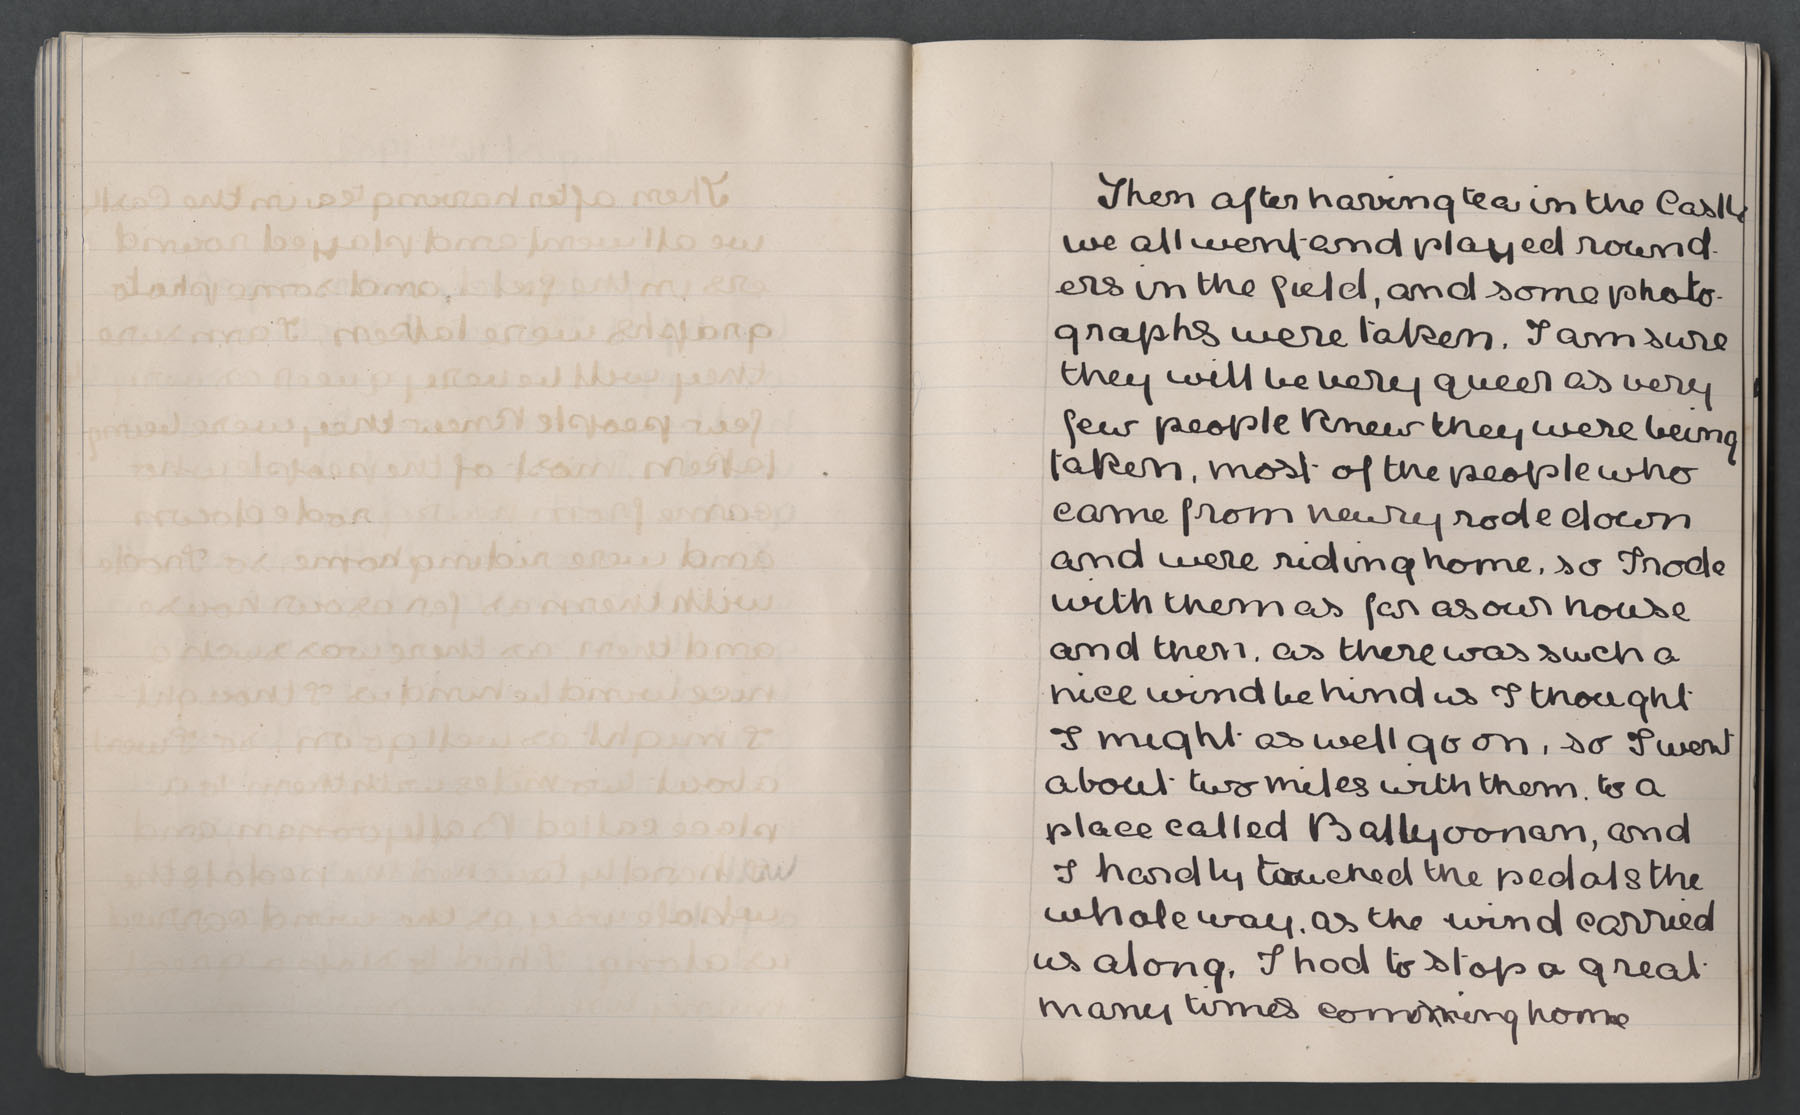 Then after having tea in the Castle
we all went and played round-
ers in the field, and some photo-
graphs were taken. I am sure
they will be very queer as very
few people knew they were being
taken, most of the people who
came from newry rode down
and were riding home, so I rode
with them as far as our house
and then, as there was such a
nice wind behind us I thought
I might as well go on, so I went
about two miles with them. to a
place called Ballyoonan, and
I hardly touched the pedals the
whole way, as the wind carried
us along, I had to stop a great
many times coming home